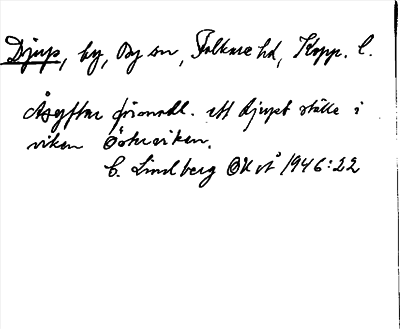 Djup, by, By sn, Folkare hd, Kopp. l.
Åsyftar förmodl. ett djupt ställe i
viken Österviken.
C. Lindberg OK st 1946:22